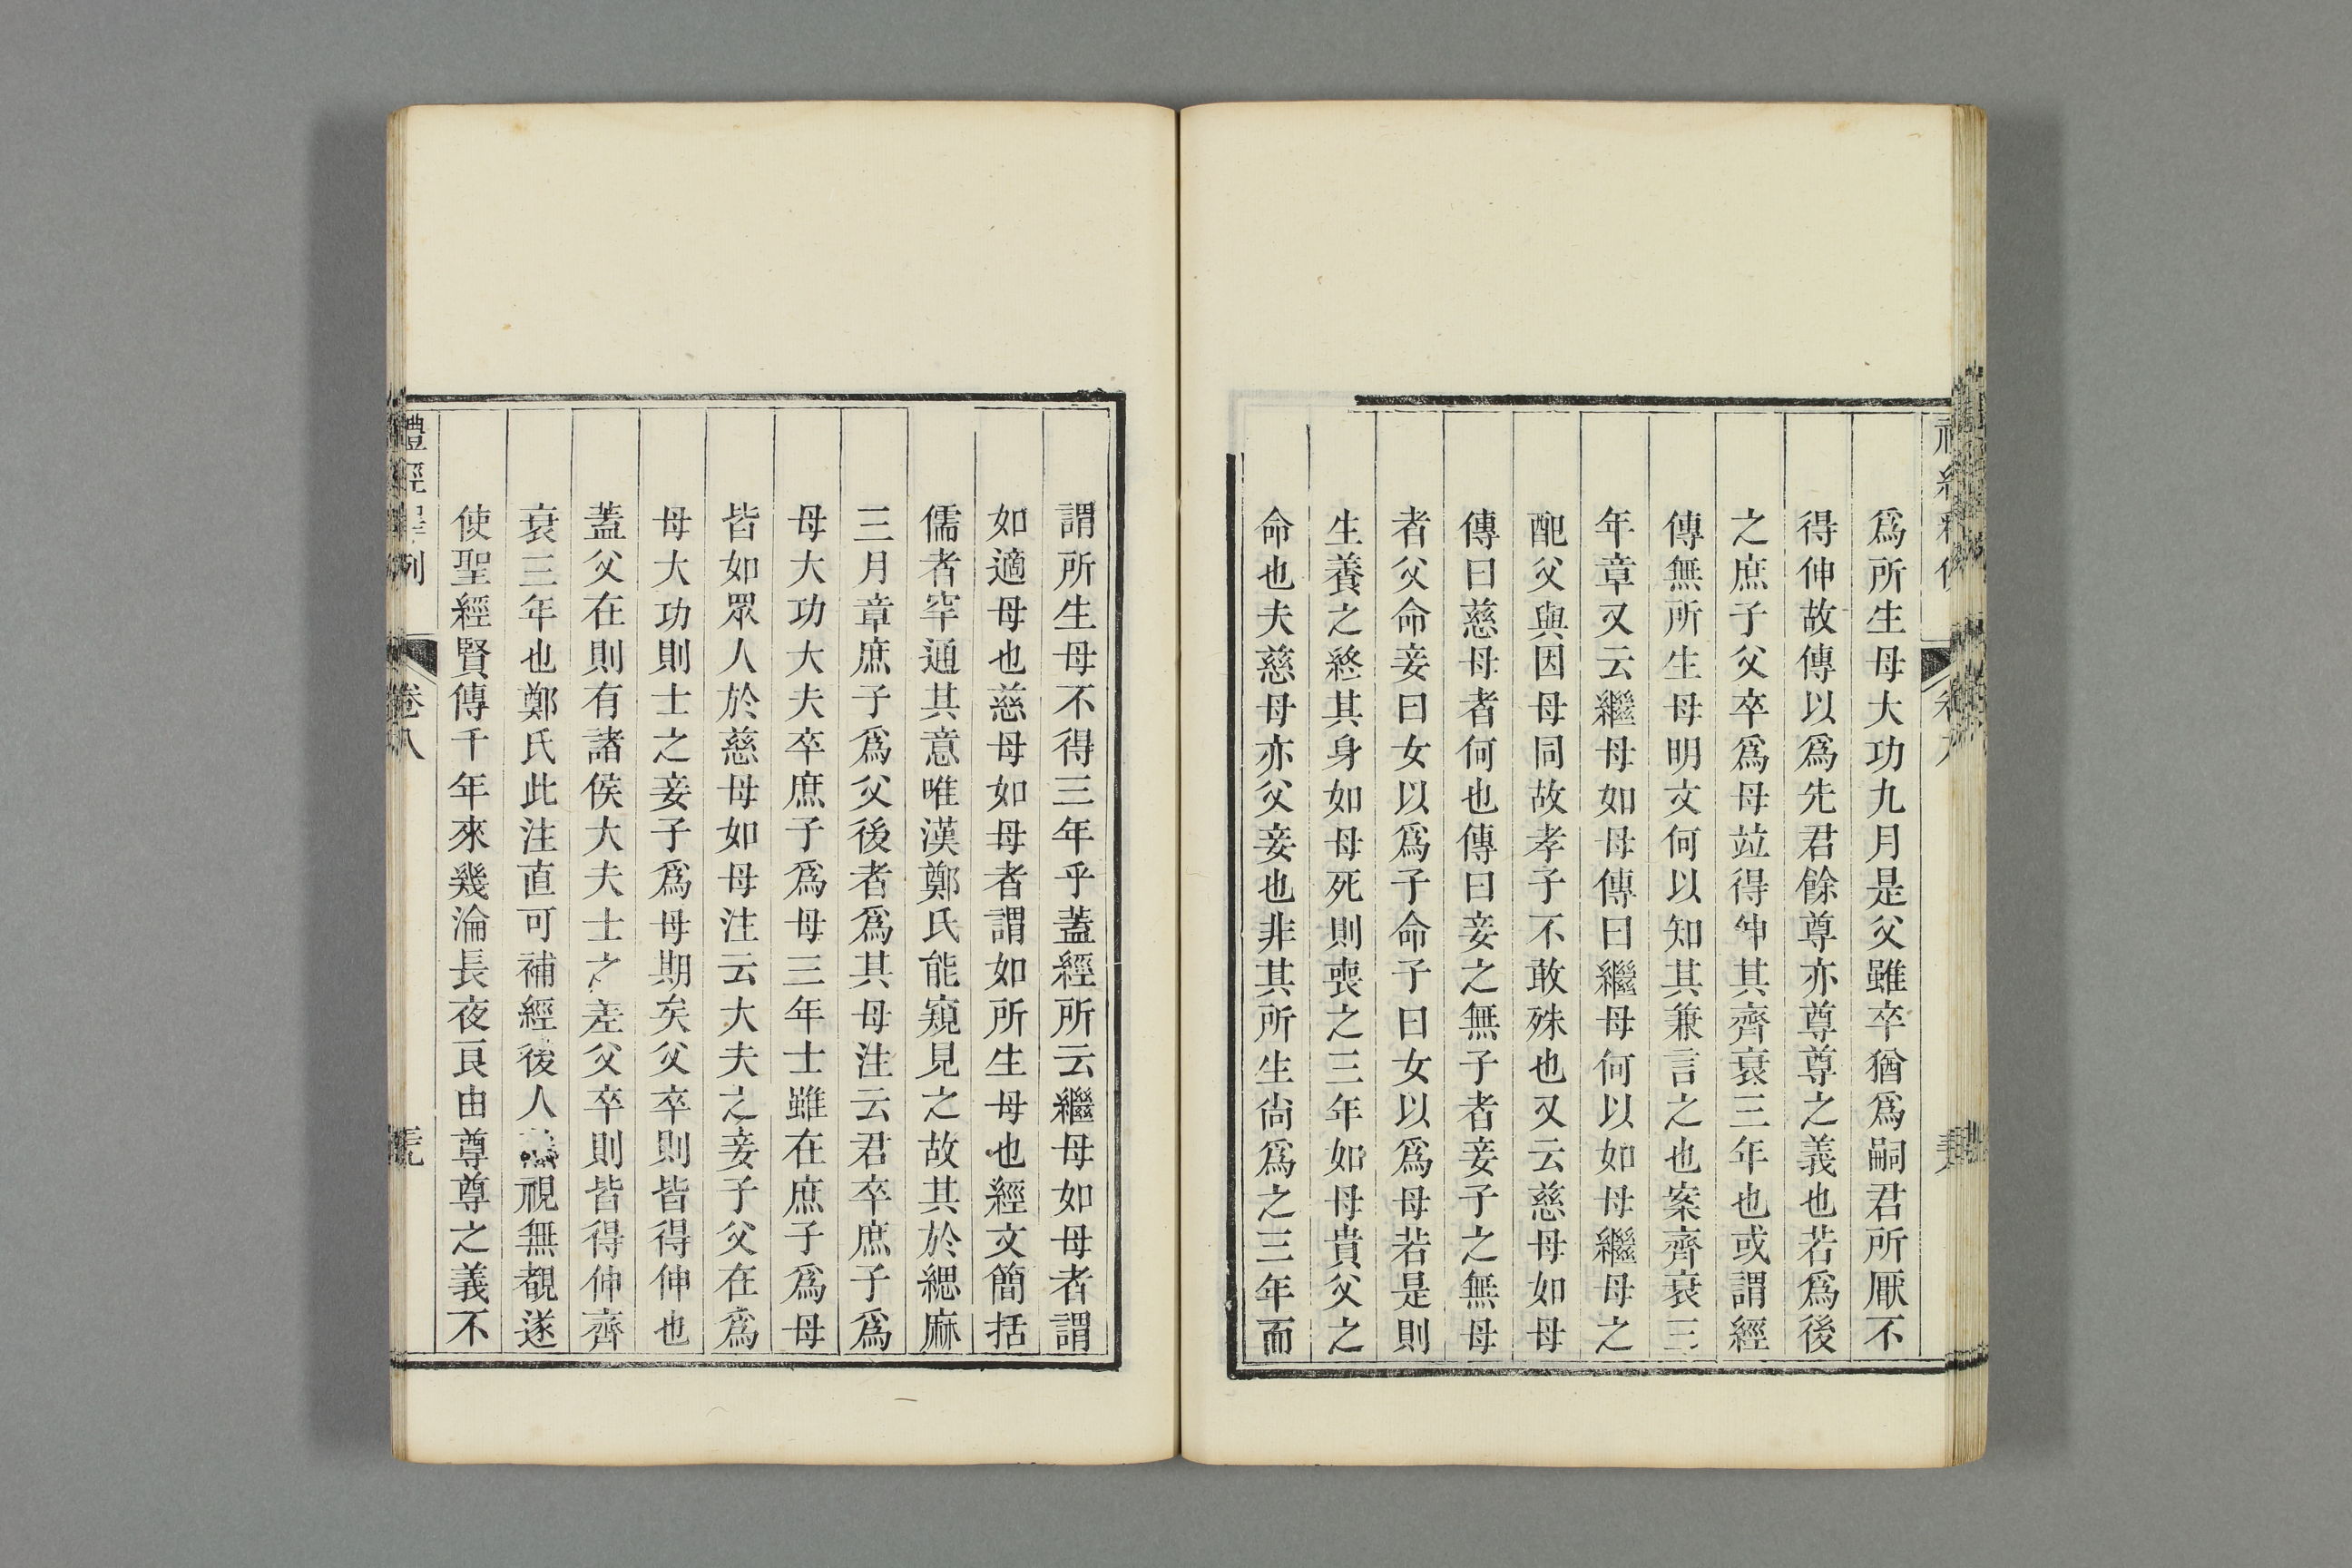 爲所生母大功九月是父雖卒猶爲嗣君所厭不
得伸故傳以爲先君餘尊亦尊尊之義也若爲後
之庶子父卒爲母竝得伸其齊衰三年也或謂經
傳無所生母明文何以知其兼言之也案齊衰三
年章又云繼母如母傳曰繼母何以如母繼母之
配父與因母同故孝子不敢殊也又云慈母如母
傳曰慈母者何也傳曰妾之無子者妾子之無母
者父命妾曰女以爲子命子曰女以爲母若是則
生養之終其身如母死則喪之三年如母貴父之
命也夫慈母亦父妾也非其所生尙爲之三年而
謂所生母不得三年乎蓋經所云繼母如母者謂
如適母也慈母如母者謂如所生母也經文簡括
儒者罕通其意唯漢鄭氏能窺見之故其於緦麻
三月章庶子爲父後者爲其母注云君卒庶子爲
母大功大夫卒庶子爲母三年士雖在庶子爲母
皆如眾人於慈母如母注云大夫之妾子父在爲
母大功則士之妾子爲母期矣父卒則皆得伸也
蓋父在則有諸侯大夫士之差父卒則皆得伸齊
衰三年也鄭氏此注直可補經後人視無覩遂
使聖經賢傳千年來幾淪長夜良由尊尊之義不
禮經釋例 卷八